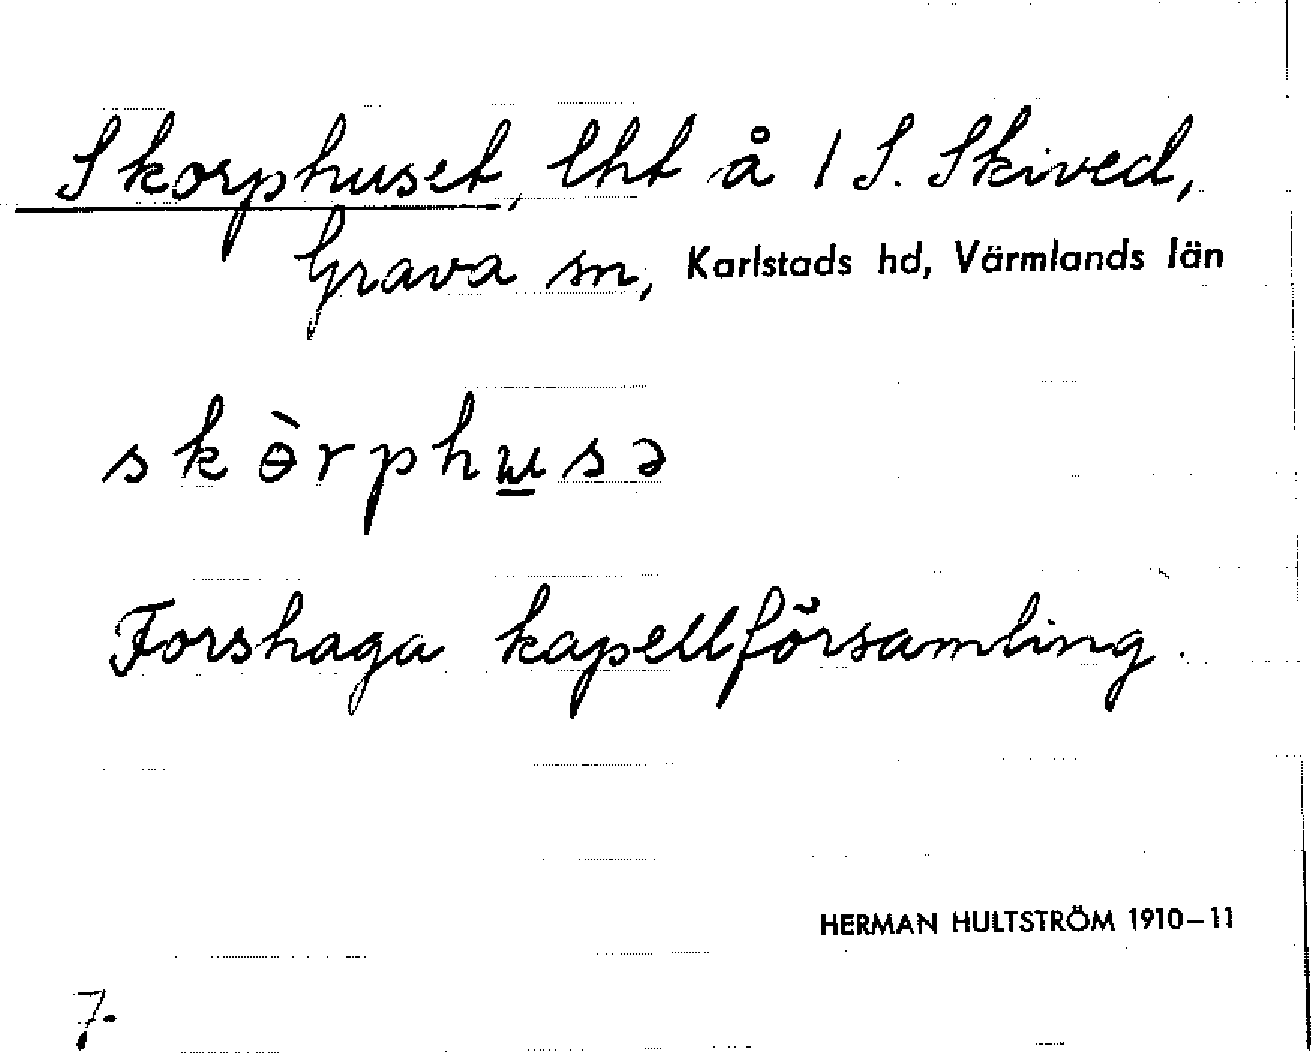 Skorphuset, lht å 1 S. Skived,
Grava sn, Karlstads hd, Värmlands län
skɵ̀rphɯ̲sə
Forshaga kapellförsamling.
HERMAN HULTSTRÖM 1910–11
7.